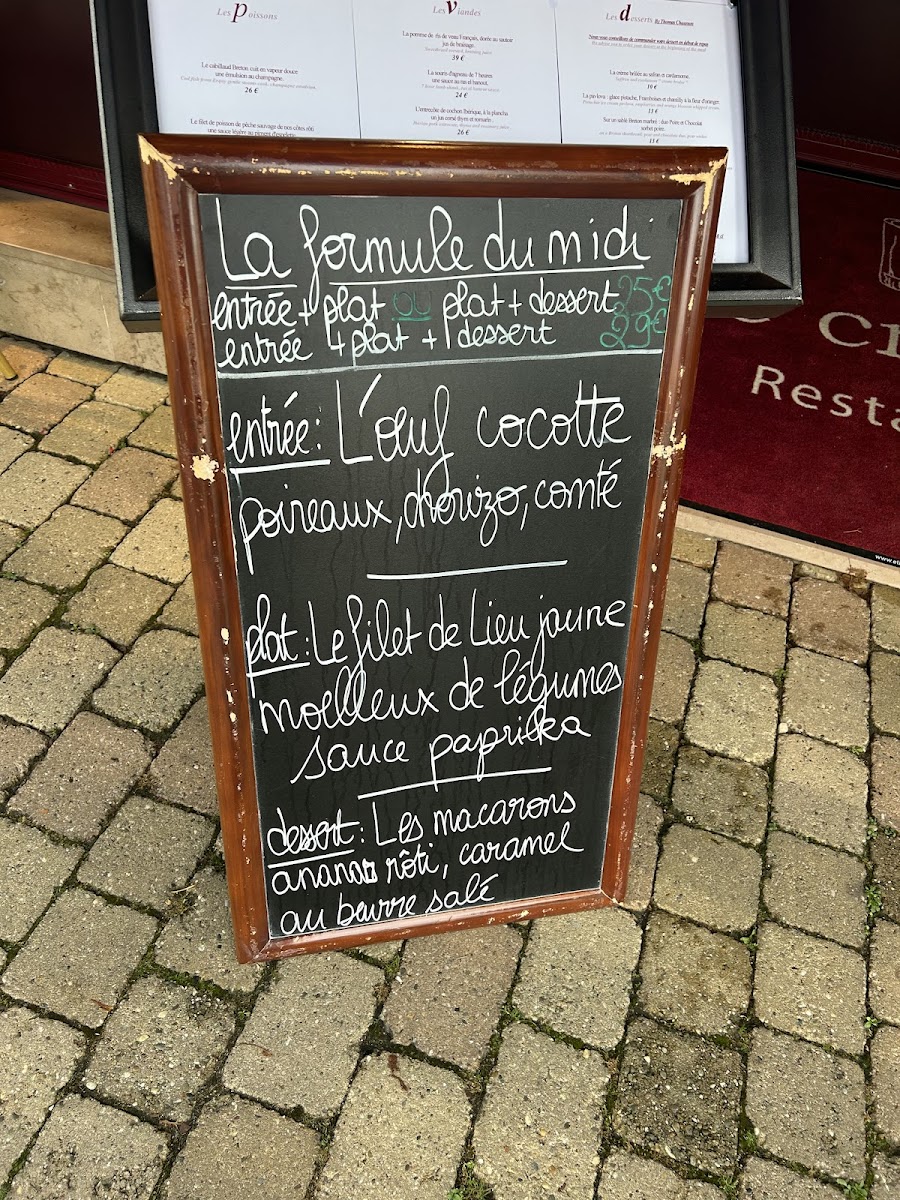 Les Poissons
Le cabillaud Breton cuit en vapeur douce
une émulsion au champagne.
26 €
Le filet de poisson de pêche sauvage de nos côtes rôti
une sauce légère au piment d'espelette
Les Viandes
La pomme de ris de veau Français, dorée au sautoir
jus de braisage.
39 €
La souris d'agneau de 7 heures
une sauce au ras el hanout.
24 €
L'entrecôte de cochon Ibérique, à la plancha
un jus corsé thym et romarin.
26 €
Les desserts By Thomas Chausson
Nous vous conseillons de commander votre dessert en début de repas
La crème brûlée au safran et cardamome.
10 €
La pavlova : glace pistache, Framboises et chantilly à la fleur d'oranger.
15 €
Sur un sablé Breton marbré : duo Poire et Chocolat
sorbet poire.
15 €
La formule du midi
entrée + plat ou plat + dessert 25€
entrée + plat + 1 dessert 29€
entrée : L'œuf cocotte
poireaux, chorizo, comté
plat : Le filet de Lieu jaune
moelleux de légumes
sauce paprika
dessert : Les macarons
ananas rôti, caramel
au beurre salé
Resta